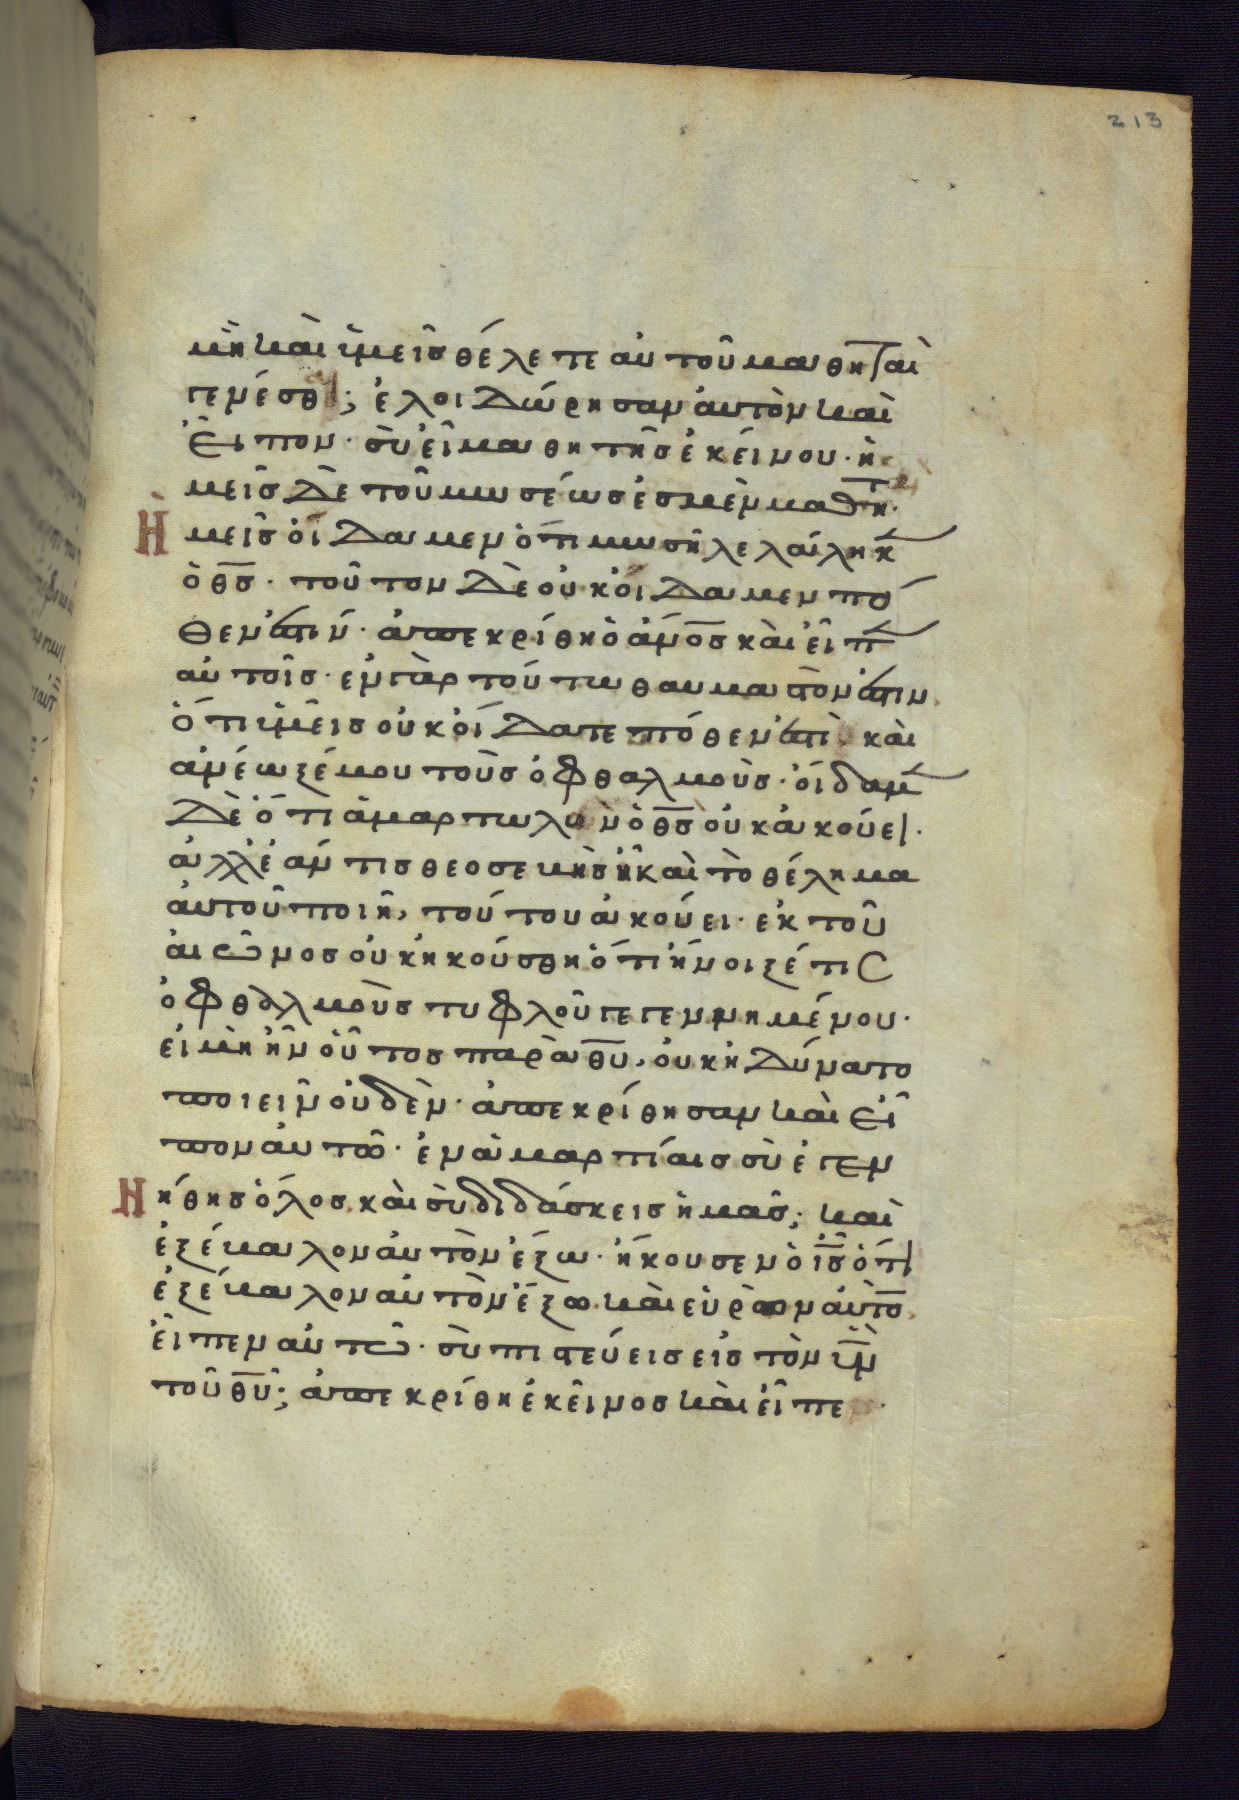 213
μὴ καὶ ὑμεῖς θέλετε αὐτοῦ μαθηταὶ
γενέσθαι; ἐλοιδώρησαν αὐτὸν καὶ
εἶπον· σὺ εἶ μαθητῆς ἐκείνου· ἡ
μεῖς δὲ τοῦ μωσέως ἐσμὲν μαθη·
Ἡμεῖς οἴδαμεν ὅτι μωσῆ λελάληκ
ὁ θς· τοῦτον δὲ οὐκ οἴδαμεν πό
θεν ἐστίν· ἀπεκρίθη ὁ ἄνος καὶ εἶπ
αὐτοῖς· ἐν γὰρ τούτω θαυμαστόν ἐστιν
ὅτι ὑμεῖς οὐκ οἴδατε πόθεν ἐστὶ, καὶ
ἀνέωξέ μου τοὺς ὀφθαλμοὺς· οἴδαμ
δὲ ὅτι ἁμαρτωλῶν ὁ θς οὐκ ἀκούει·
ἀλλ' ἐάν τις θεοσεβὴς ἦ καὶ τὸ θέλημα
αὐτοῦ ποιῆ, τούτου ἀκούει· ἐκ τοῦ
αἰῶνος οὐκ ἠκούσθη ὅτι ἤνοιξέ τις
ὀφθαλμοὺς τυφλοῦ γεγεννημένου·
εἰ μὴ ἦν οὗτος παρὰ θυ, οὐκ ἠδύνατο
ποιεῖν οὐδὲν· ἀπεκρίθησαν καὶ εἶ
πον αὐτῶ· ἐν ἁμαρτίαις σὺ ἐγεν
Νήθης ὅλος, καὶ σὺ διδάσκεις ἡμᾶς; καὶ
ἐξέβαλον αὐτὸν ἔξω· ἤκουσεν ὁ ις ὅτι
ἐξέβαλον αὐτὸν ἔξω. καὶ εὑρὼν αὐτὸ
εἶπεν αὐτῶ· σὺ πιστεύεις εἰς τὸν υν
τοῦ θυ; ἀπεκρίθη ἐκεῖνος καὶ εἶπε